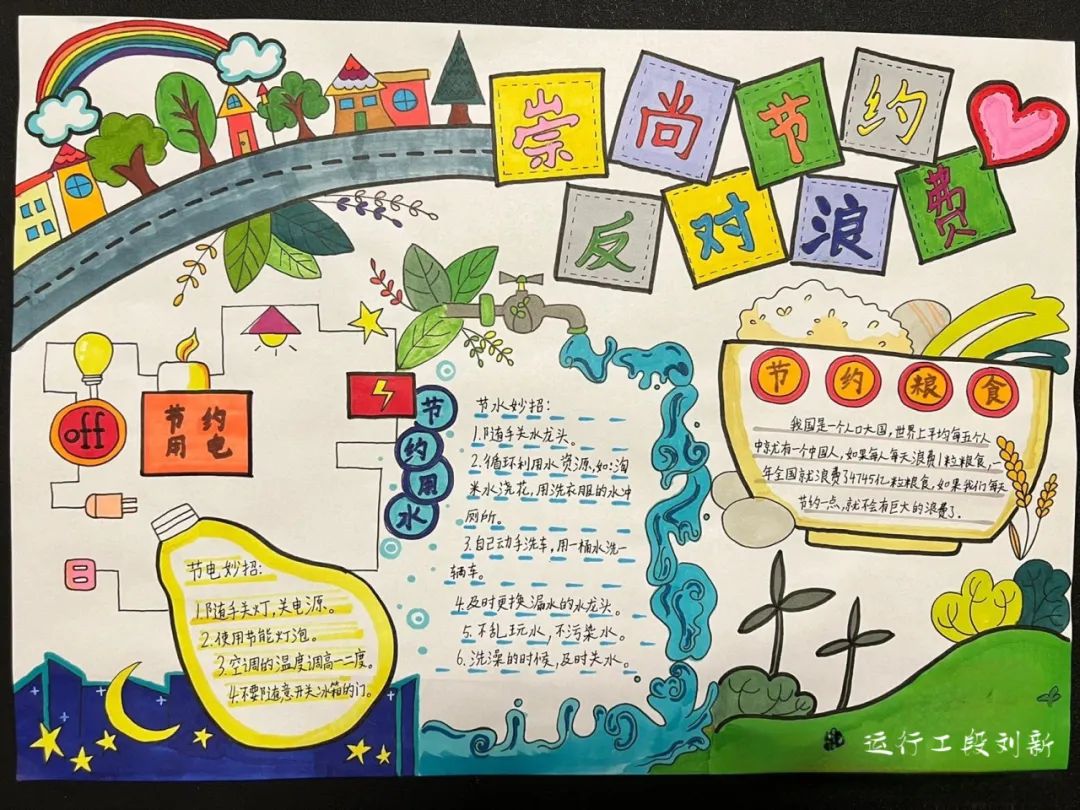 崇尚节约
反对浪费
off
节约
用电
节约用水
节水妙招:
1.随手关水龙头。
2.循环利用水资源,如:淘
米水浇花,用洗衣服的水冲
厕所。
3.自己动手洗车,用一桶水洗一
辆车。
4.及时更换漏水的水龙头。
5.不乱玩水,不污染水。
6.洗澡的时候,及时关水。
节约粮食
我国是一个人口大国,世界上平均每五个人
中就有一个中国人,如果每人每天浪费1粒粮食,一
年全国就浪费34745亿粒粮食,如果我们每天
节约一点,就不会有巨大的浪费了.
节电妙招:
1.随手关灯,关电源。
2.使用节能灯泡。
3.空调的温度调高一二度。
4.不要随意开关冰箱的门。
运行工段刘新